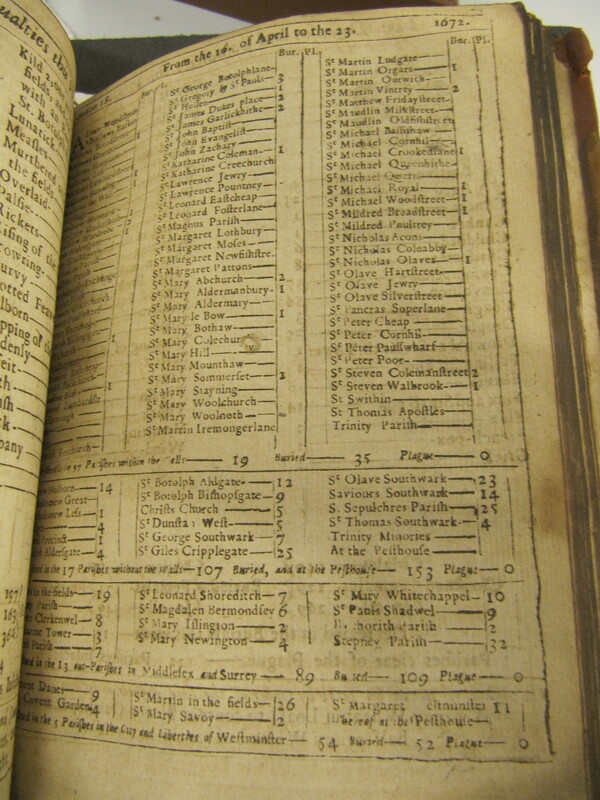 ualties this
Kild 2
fields
with
St. Botolph
Lunatick
Measles
Murthered
the fields
Overlaid
Palsie
Rickets
Rising of the
rowing
urvy
otted Feav
lborn
pping of
denly
eit
th
ush
ck
pany
From the 16. of April to the 23. 1672.
Bur. Pl.
St George Botolphlane
St Gregory by St Pauls 3
St Hellen 1
St James Dukes place 2
St James Garlickhithe 2
St John Baptist
St John Evangelist
St John Zachary
St Katharine Coleman 1
St Katharine Creechurch
St Lawrence Jewry
St Lawrence Pountney
St Leonard Eastcheap
St Leonard Fosterlane
St Magnus Parish
St Margaret Lothbury
St Margaret Moses
St Margaret Newfishstre.
St Margaret Pattons
St Mary Abchurch 2
St Mary Aldermanbury 1
St Mary Aldermary
St Mary le Bow 1
St Mary Bothaw
St Mary Colechur
St Mary Hill
St Mary Mounthaw
St Mary Sommerset 2
St Mary Stayning
St Mary Woolchurch
St Mary Woolnoth
St Martin Iremongerlane
Bur. Pl.
St Martin Ludgate
St Martin Orgars 1
St Martin Outwich
St Martin Vintrey 2
St Matthew Fridaystreet
St Maudlin Milkstreet
St Maudlin Oldfishstreet
St Michael Bassishaw
St Michael Cornhil
St Michael Crookedlane 1
St Michael Queenhithe
St Michael Quern
St Michael Royal 1
St Michael Woodstreet 1
St Mildred Breadstreet 1
St Mildred Poultrey
St Nicholas Acons
St Nicholas Coleabby
St Nicholas Olaves 1
St Olave Hartstreet
St Olave Jewry
St Olave Silverstreet
St Pancras Soperlane
St Peter Cheap
St Peter Cornhil
St Peter Paulswharf
St Peter Poor
St Steven Colemanstreet 2
St Steven Walbrook 1
St Swithin
St Thomas Apostles
Trinity Parish
in the 97 Parishes within the Walls 19 Buried 35 Plague 0
Holborn 14
Great
Less 1
1
Precinct 1
Aldersgate 4
St Botolph Aldgate 12
St Botolph Bishopsgate 9
Christs Church 5
St Dunstan West 5
St George Southwark 7
St Giles Cripplegate 25
St Olave Southwark 23
Saviours Southwark 14
S. Sepulchres Parish 25
St Thomas Southwark 4
Trinity Minories
At the Pesthouse
in the 17 Parishes without the walls 107 Buried, and at the Pesthouse 153 Plague 0
in the fields 19
Parish
Clerkenwel 8
Tower 3
Parish 7
St Leonard Shoreditch 7
St Magdalen Bermondsey 6
St Mary Islington 2
St Mary Newington 4
St Mary Whitechappel 10
St Pauls Shadwel 9
Parish 2
Stepney Parish 32
in the 13 out-Parishes in Middlesex and Surrey 89 Buried 109 Plague 0
Danes 9
Covent Garden 4
St Martin in the fields 26
St Mary Savoy 2
St Margaret estminster 11
Whereof at the Pesthouse
in the 5 Parishes in the City and Liberties of Westminster 54 Buried 52 Plague 0